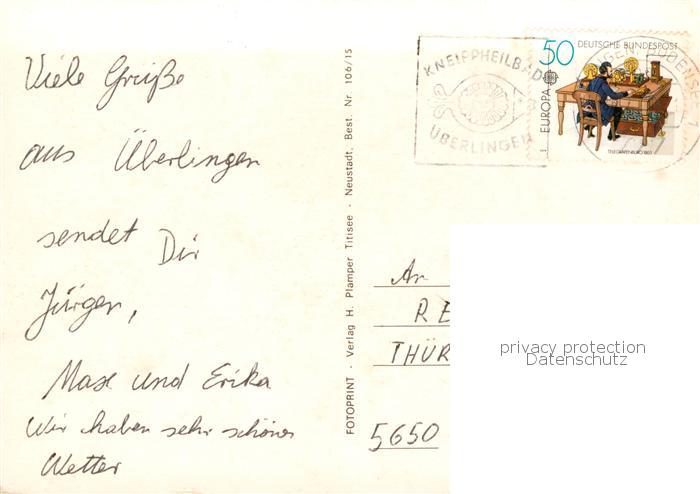 Viele Grüße
aus Überlingen
sendet Dir
Jürgen,
Max und Erika
Wir haben sehr schönes
Wetter
FOTOPRINT - Verlag H. Plamper Titisee - Neustadt, Best. Nr. 106/15
KNEIPPHEILBAD
ÜBERLINGEN
50 DEUTSCHE BUNDESPOST
EUROPA
TELEGRAFENBÜRO 1863
An
RE
THÜR
5650
privacy protection
Datenschutz